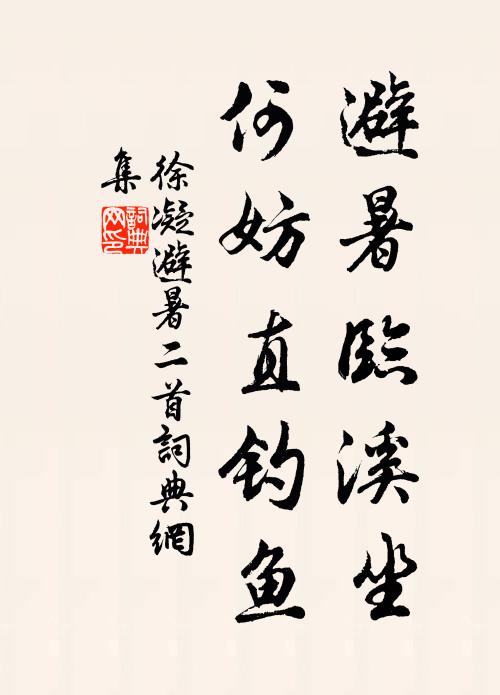 避暑臨溪坐
何妨直钓鱼
徐凝避暑二首詞典網
集
詞典網印